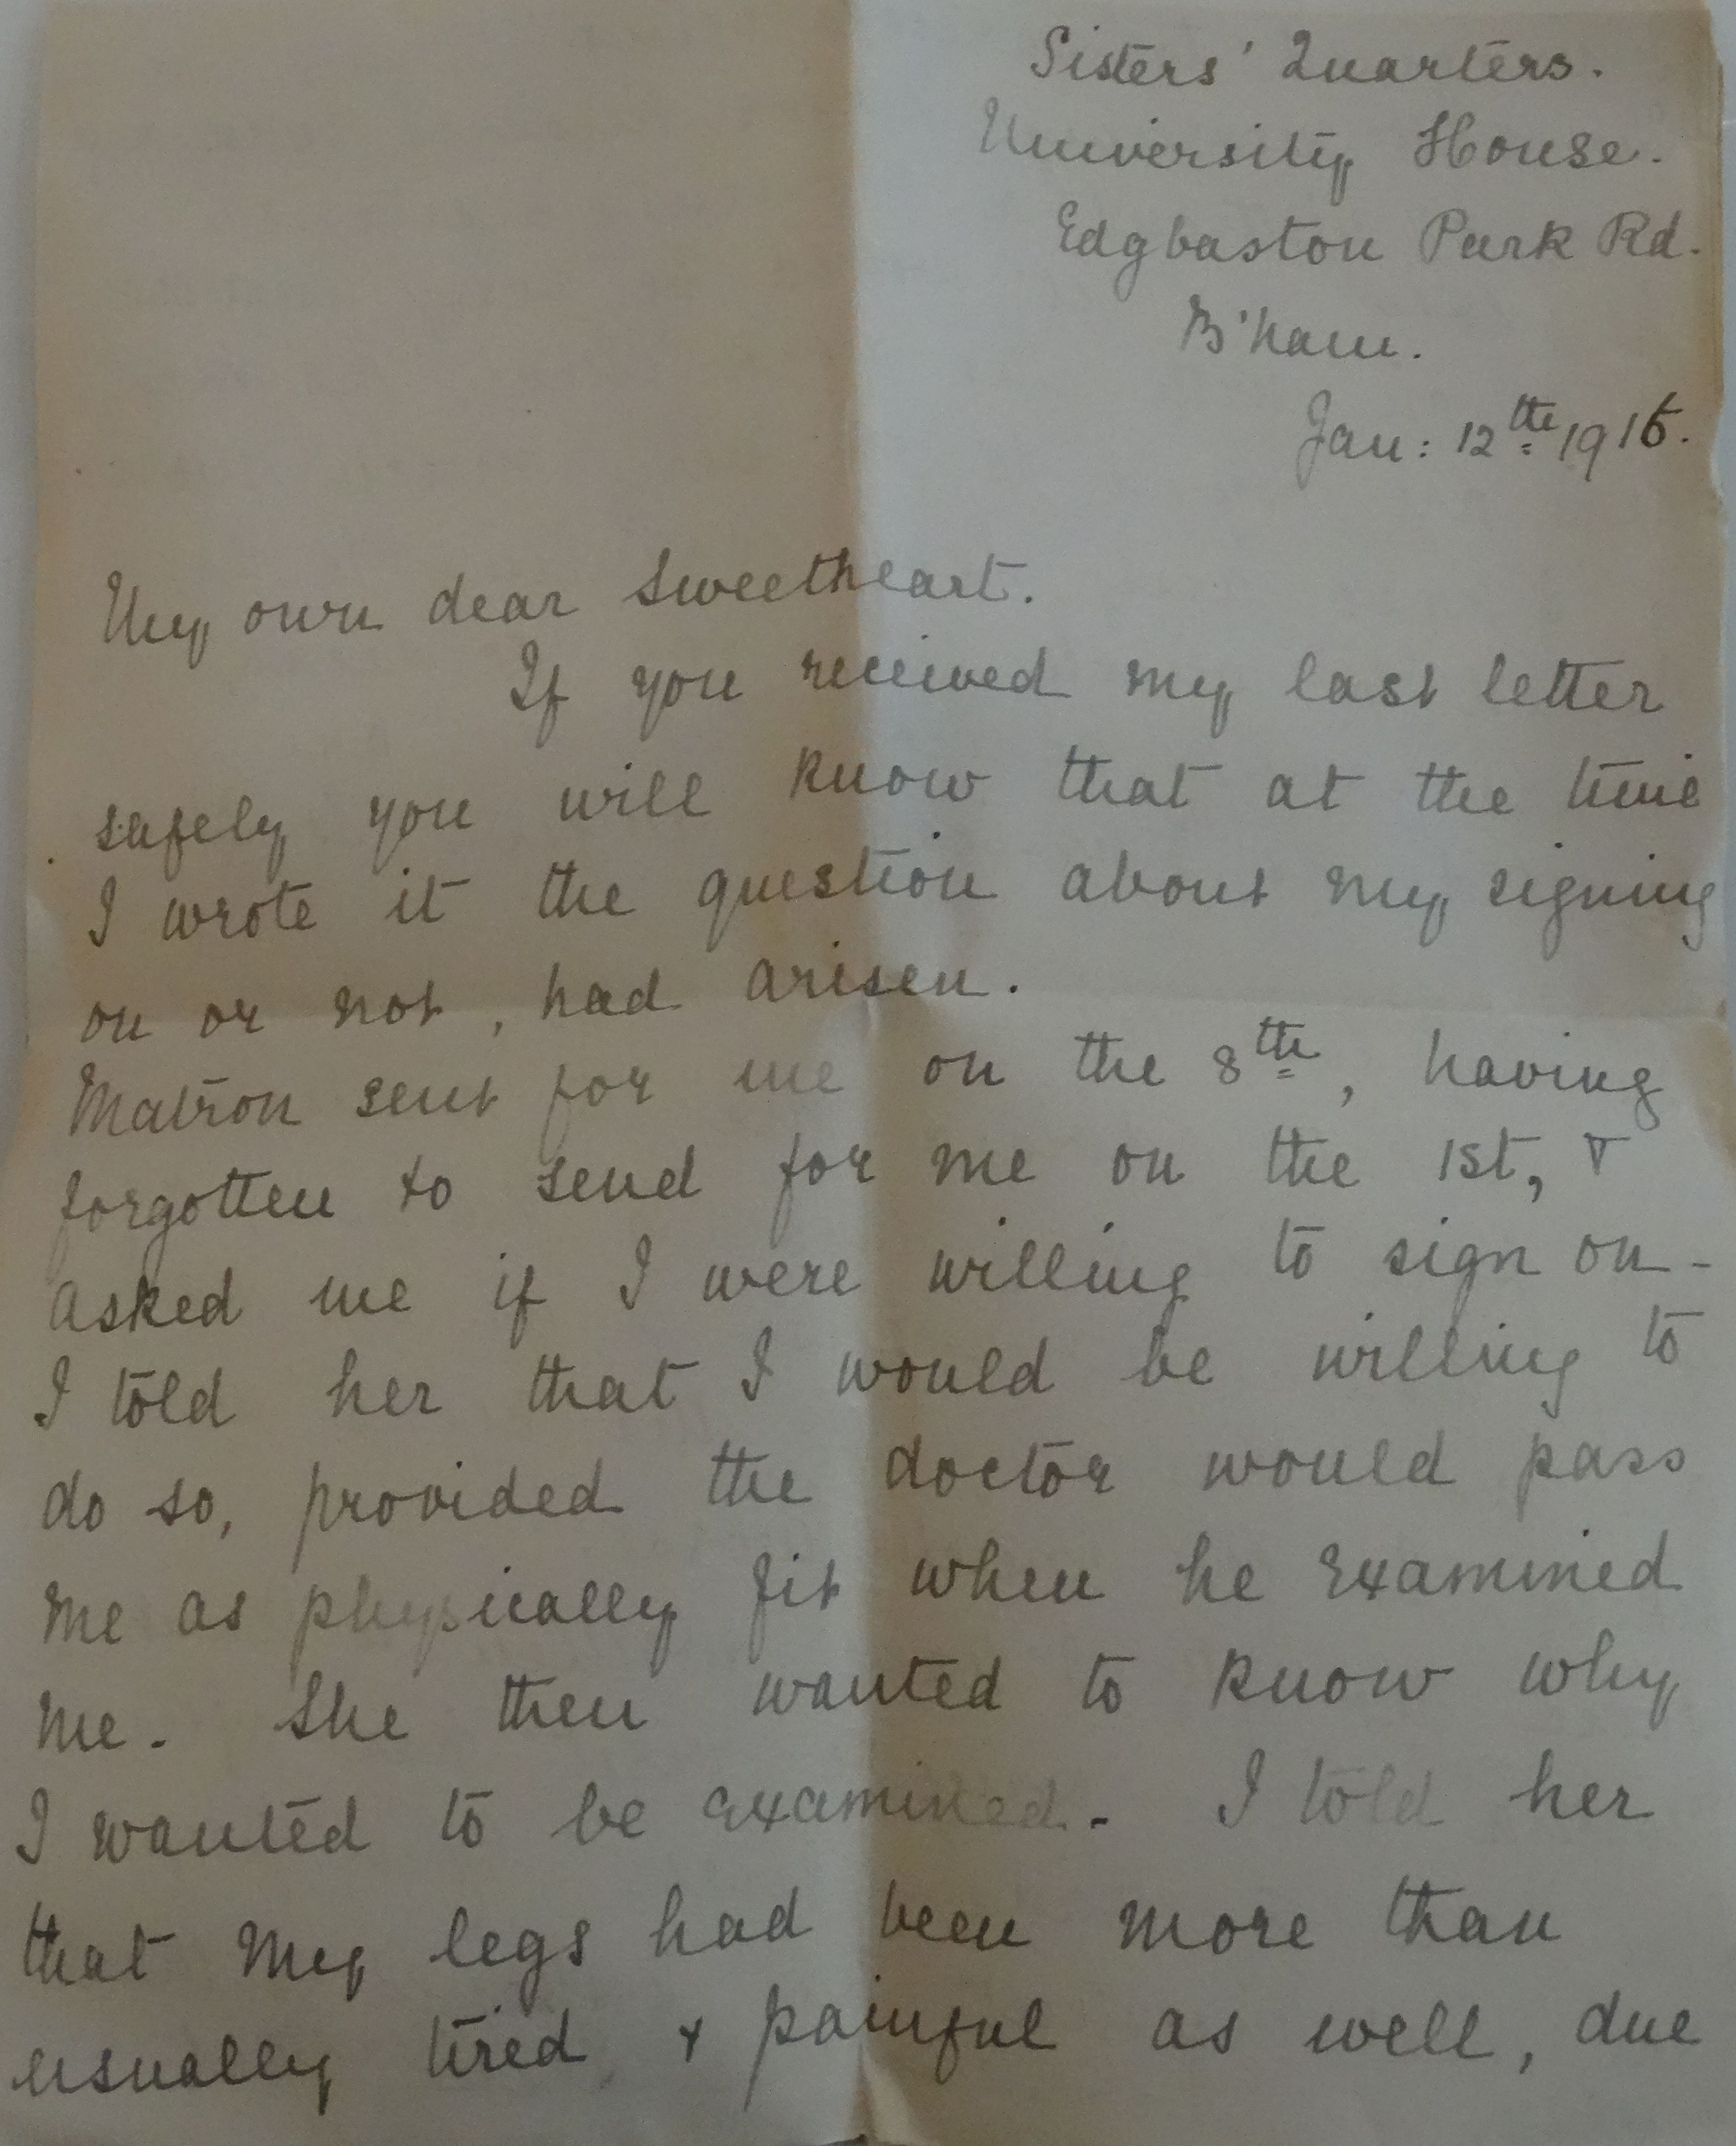 Sisters' Quarters.
University House.
Edgbaston Park Rd.
B'ham.
Jan: 12th 1916.
My own dear Sweetheart.
If you received my last letter
safely you will know that at the time
I wrote it the question about my signing
on or not, had arisen.
Matron sent for me on the 8th, having
forgotten to send for me on the 1st, &
asked me if I were willing to sign on -
I told her that I would be willing to
do so, provided the doctor would pass
me as physically fit when he examined
me. She then wanted to know why
I wanted to be examined. I told her
that my legs had been more than
usually tired & painful as well, due